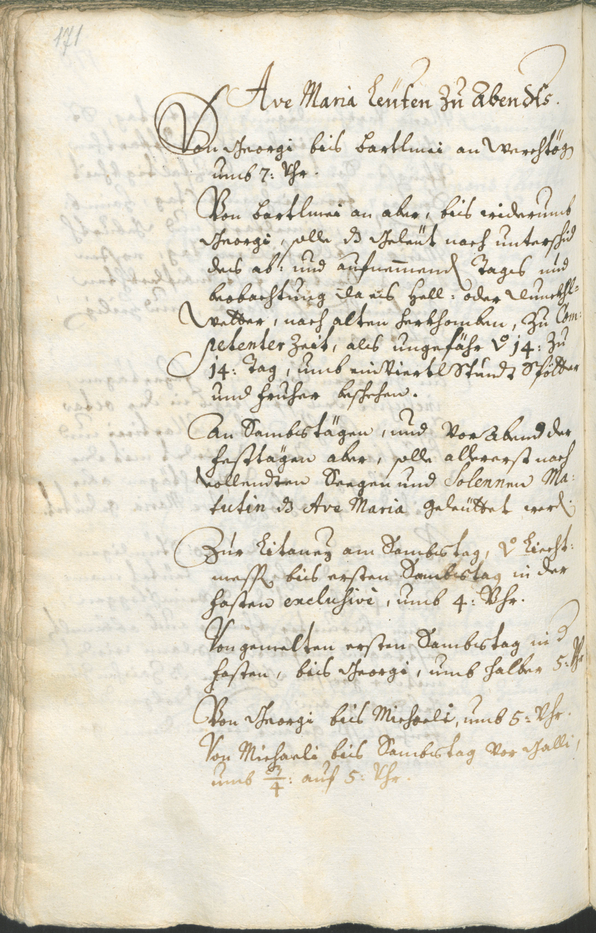 171
Ave Maria Leüten zu Abendts.
Von Georgi bis Bartlmei an Werchtög
umb 7: Uhr.
Von Bartlmei an aber, bis widerumb
Georgi, solle dz Geleüt nach unterschid
des ab: und aufnemmend Tages und
beobachtung, da es hell: oder Dunckhl=
wetter, nach alten herkhomben, zu Com:
petenter Zeit, als ungefähr v 14: zu
14: Tag, umb ein Viertl Stundt Spötter
und früher beschehen.
An Sambstägen, und Vor Abend der
Festtägen aber, solle allererst nach
vollendten Seegen und Solennen Ma:
tutin dz Ave Maria geleüttet werd.
Zur Litaney am Sambstag, v Liecht:
mess bis ersten Sambstag in der
fasten exclusivè, umb 4: Uhr.
Von gemelten ersten Sambstag in d
fasten, bis Georgi, umb halber 5: Uhr
Von Georgi bis Michaeli, umb 5: Uhr.
Von Michaeli bis Sambstag vor Galli,
umb 3/4: auf 5: Uhr.